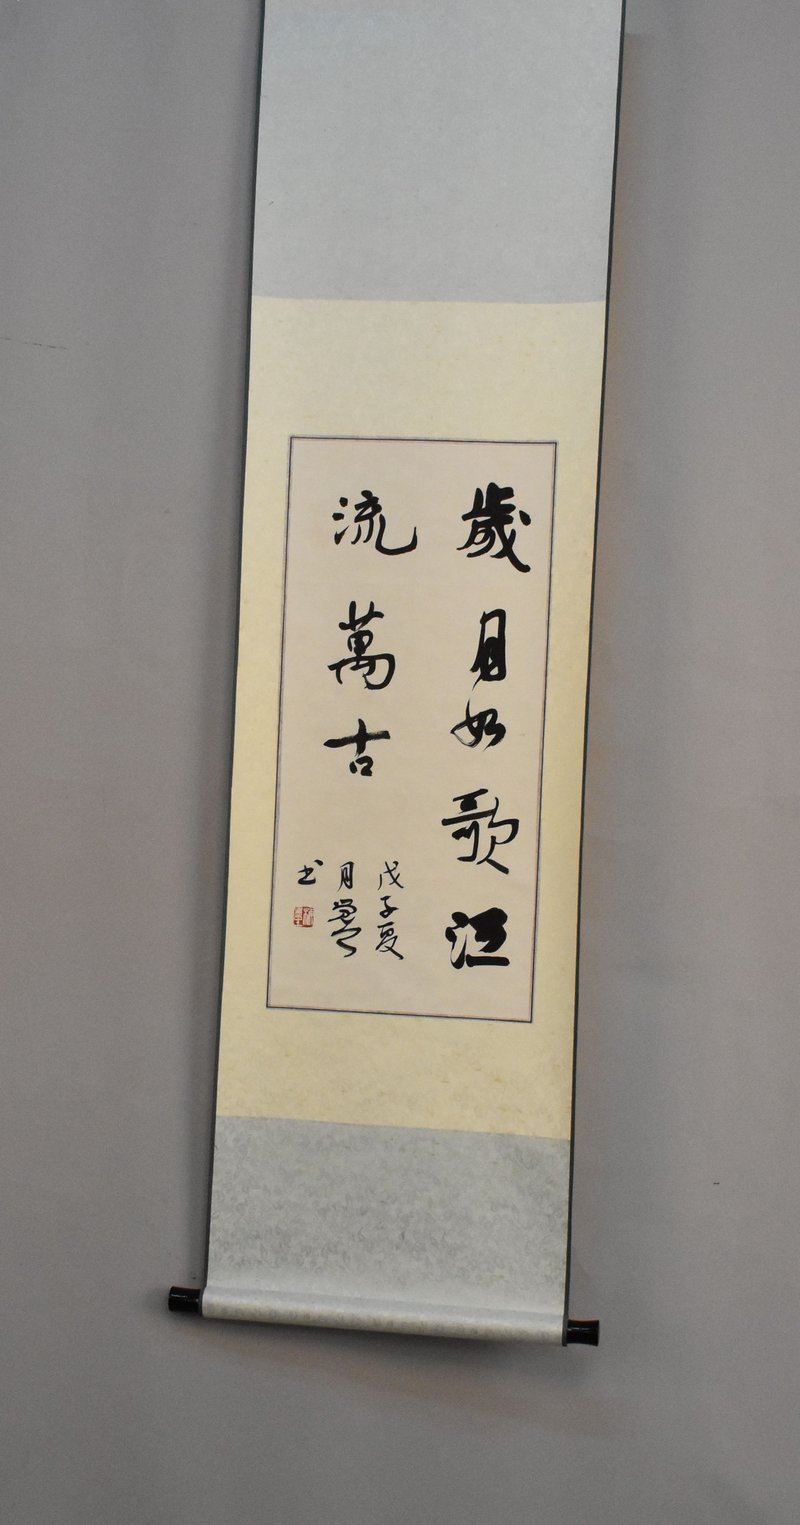 歲月如歌江
流萬古
戊子夏
月
书